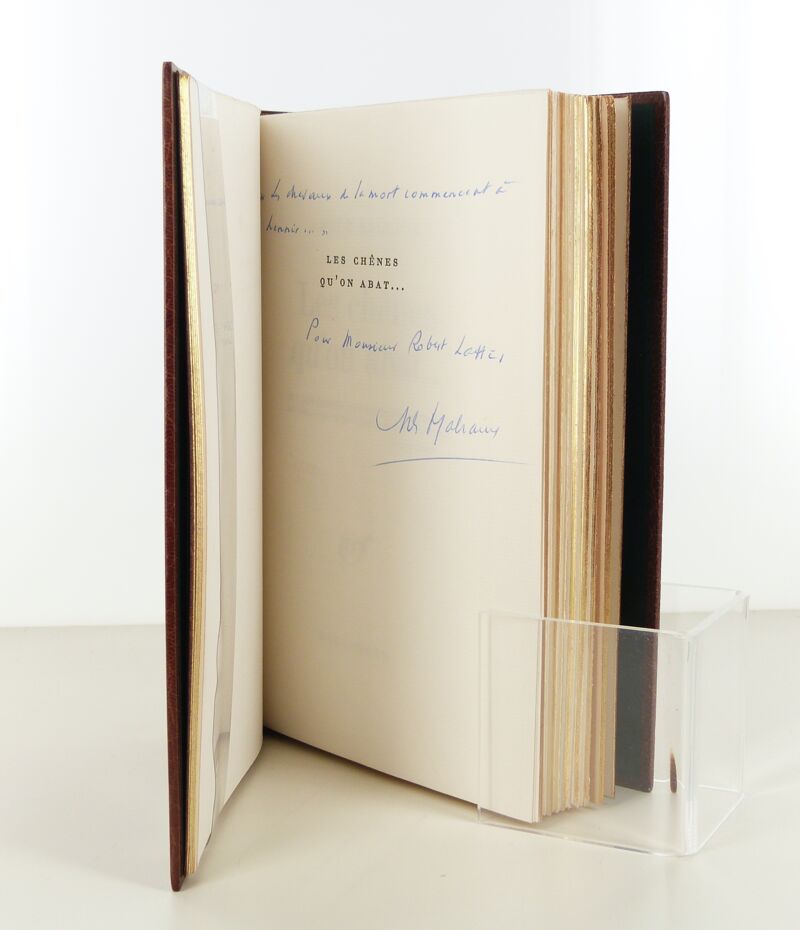 « Les chevaux de la mort commencent à
hennir... »
LES CHÊNES
QU'ON ABAT...
Pour Monsieur Robert Lattès,
André Malraux